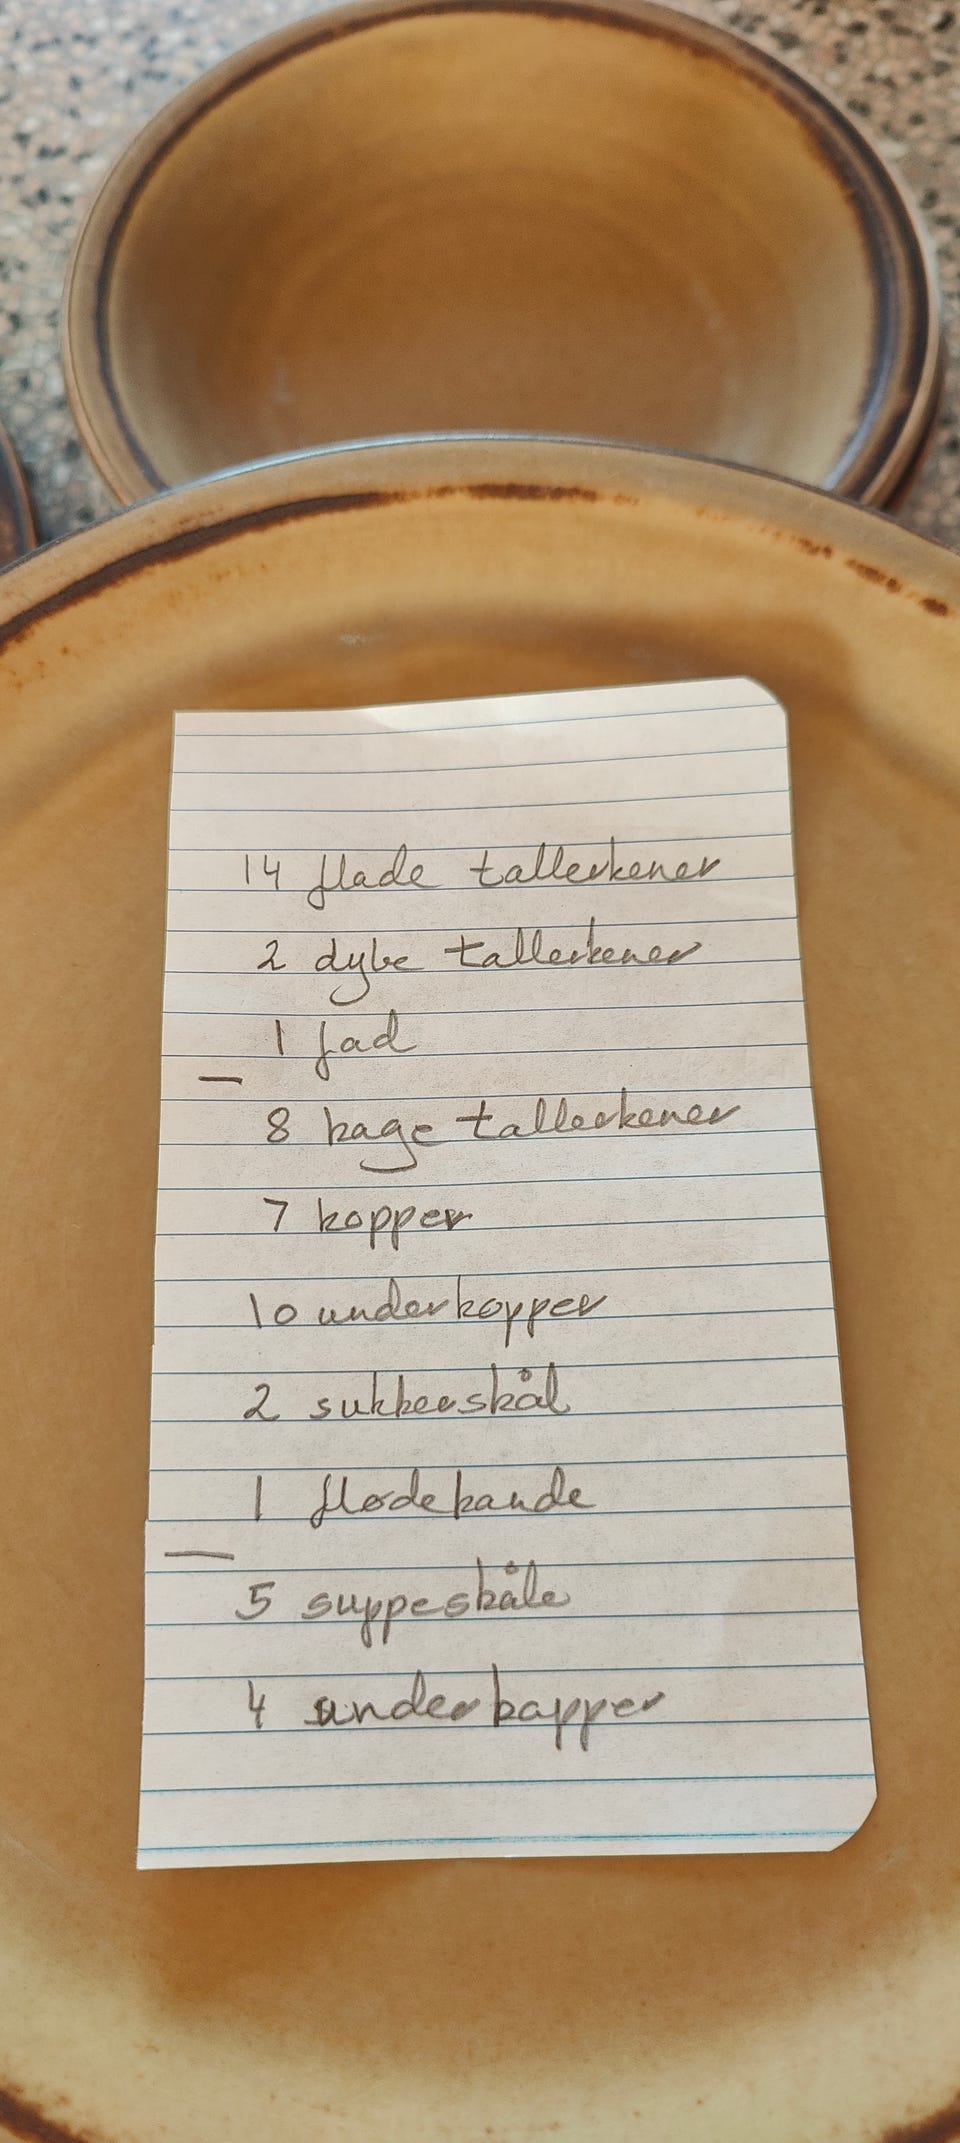 14 flade tallerkener
2 dybe tallerkener
1 fad
8 kage tallerkener
7 kopper
10 underkopper
2 sukkerskål
1 flødekande
5 suppeskåle
4 underkapper